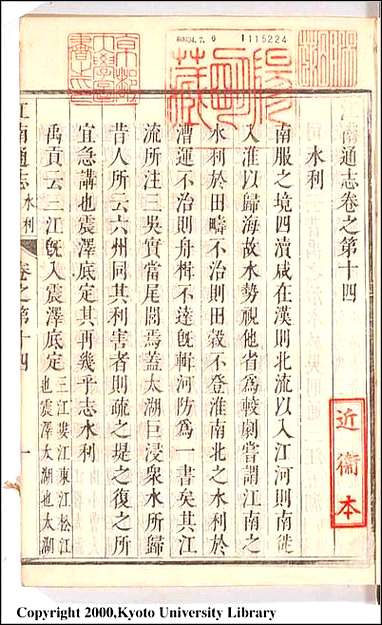 江南通志卷之第十四
水利
南服之境四瀆咸在漢則北流以入江河則南徙
入淮以歸海故水勢視他省為較劇嘗謂江南之
水利於田疇不治則田穀不登淮南北之水利於
漕運不治則舟楫不達既輯河防為一書矣其江
流所注三吳實當尾閭焉蓋太湖巨浸衆水所歸
昔人所云六州同其利害者則疏之堤之復之所
宜急講也震澤底定其再幾乎志水利
禹貢云三江既入震澤底定三江婁江東江松江
也震澤太湖也太湖
江南通志 水利 卷之第十四 一
近衞本
京都帝國大學圖書之印
陽明藏
1115224
Copyright 2000,Kyoto University Library